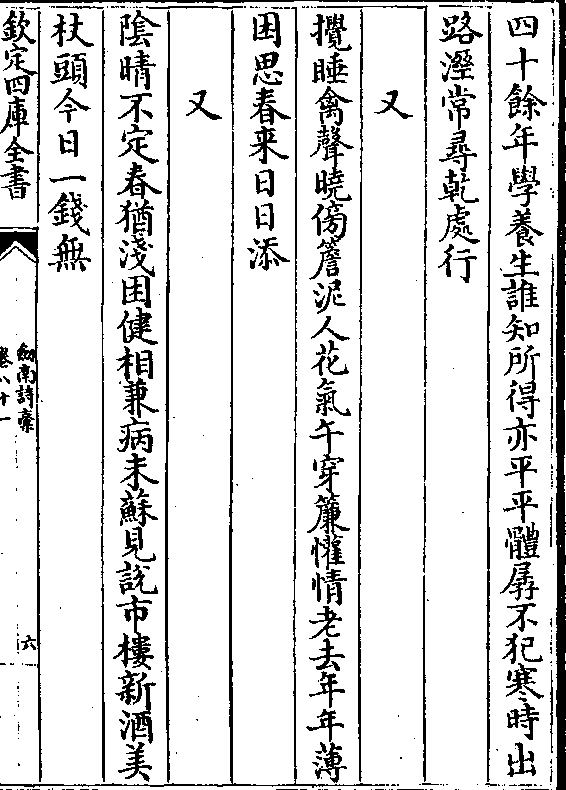 四十餘年學養生誰知所得亦平平體孱不犯寒時出
路溼常尋乾處行
又
攪睡禽聲曉傍簷泥人花氣午穿簾懽情老去年年薄
困思春来日日添
又
陰晴不定春猶淺困健相兼病未蘇見說市樓新酒美
杖頭今日一錢無
欽定四庫全書
劍南詩稾
卷八十一
六